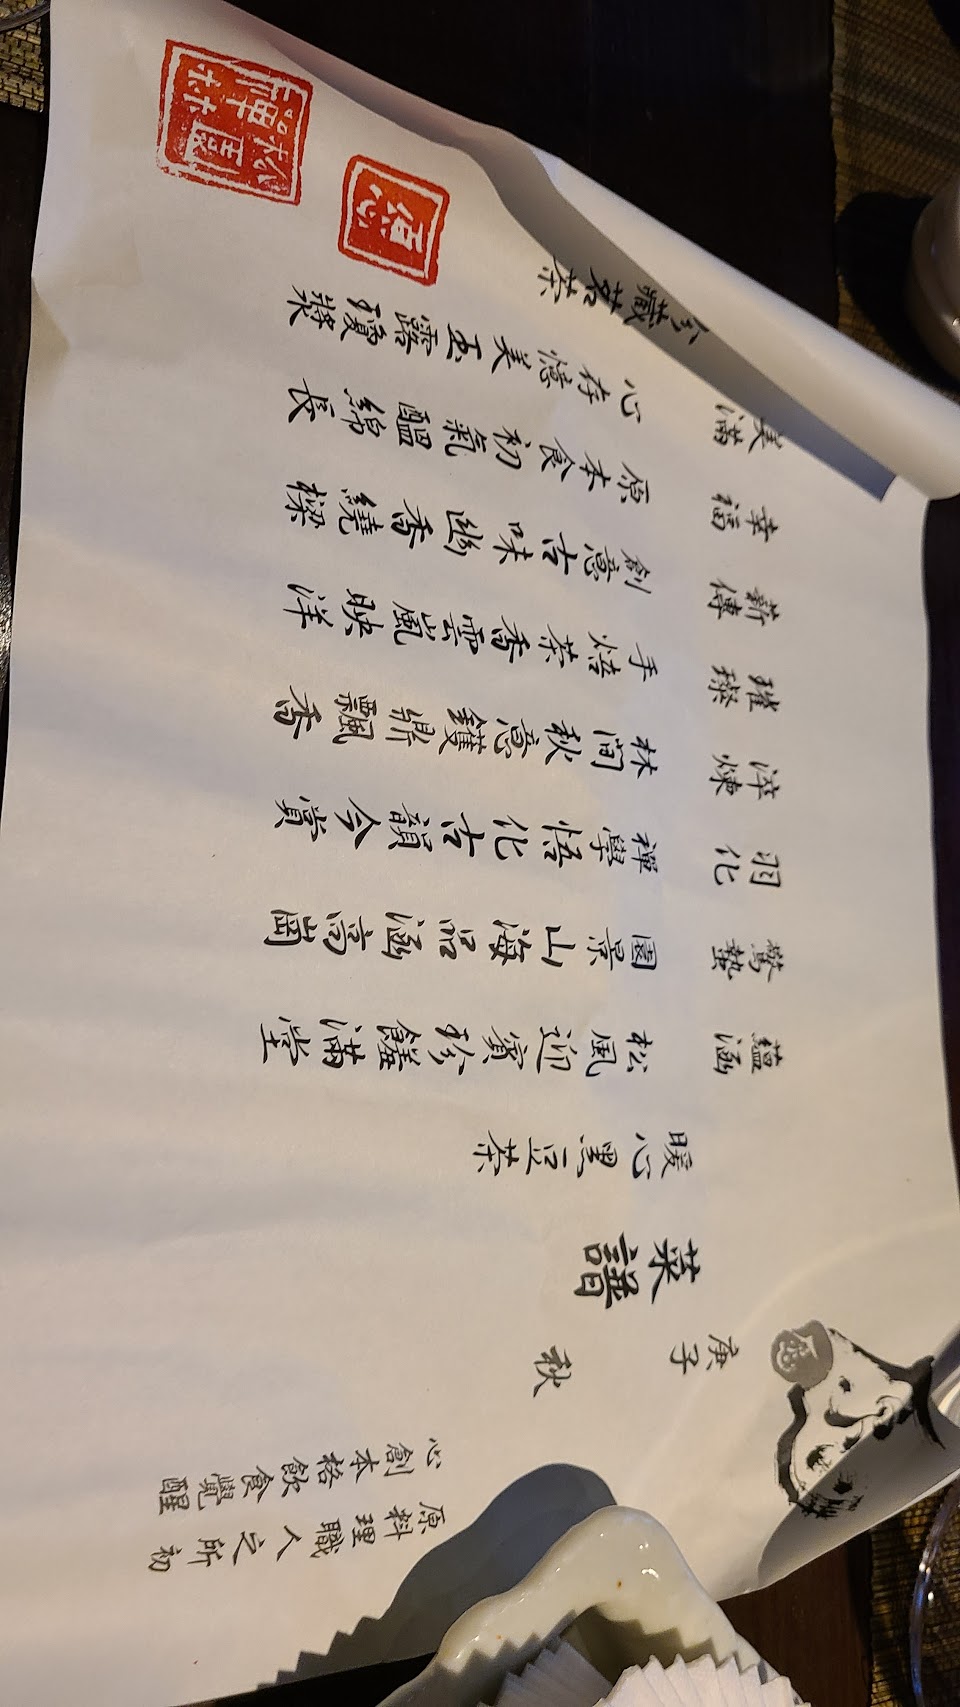 原料理職人之所初
心創本格飲食覺醒
庚子
秋
菜譜
暖心黑豆茶
蘊涵
松風迎賓珍饈滿堂
驚蟄
園景山海品涵高崗
羽化
禪學悟化古韻今賞
淬煉
林間秋意鑊鼎飄香
璀璨
手焙茶香雲嵐映洋
薪傳
創意古味幽香繞樑
幸福
原本食初氣醞綿長
美滿
心存憶美玉露瓊漿
藏茗茶
松園禪林